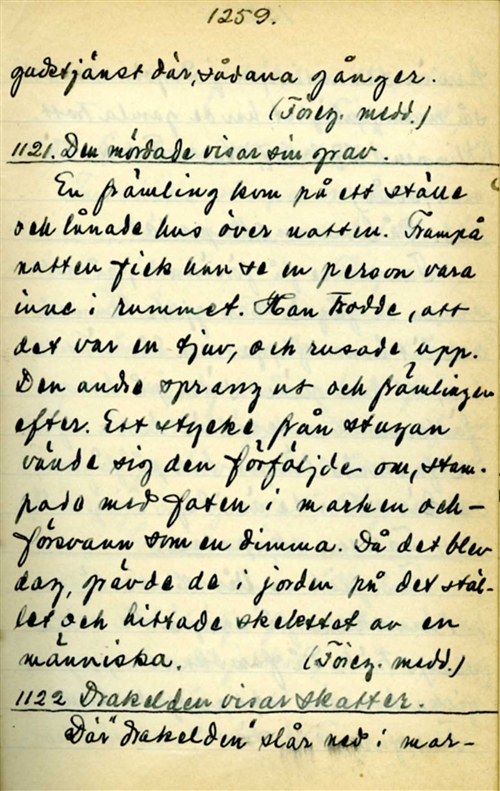 1259.
gudstjänst där, sådana gånger.
(Föreg. medd.)
1121. Den mördade visar sin grav.
En främling kom på ett ställe
och lånade hus över natten. Frampå
natten fick han se en person vara
inne i rummet. Han trodde, att
det var en tjuv, och rusade upp.
Den andre sprang ut och främlingen
efter. Ett stycke från stugan
vände sig den förföljde om, stam-
pade med foten i marken och -
försvann som en dimma. Då det blev
dag, grävde de i jorden på det stäl-
let och hittade skelettet av en
människa. (Föreg. medd.)
1122 Drakelden visar skatter.
Där "drakelden" slår ned i mar-